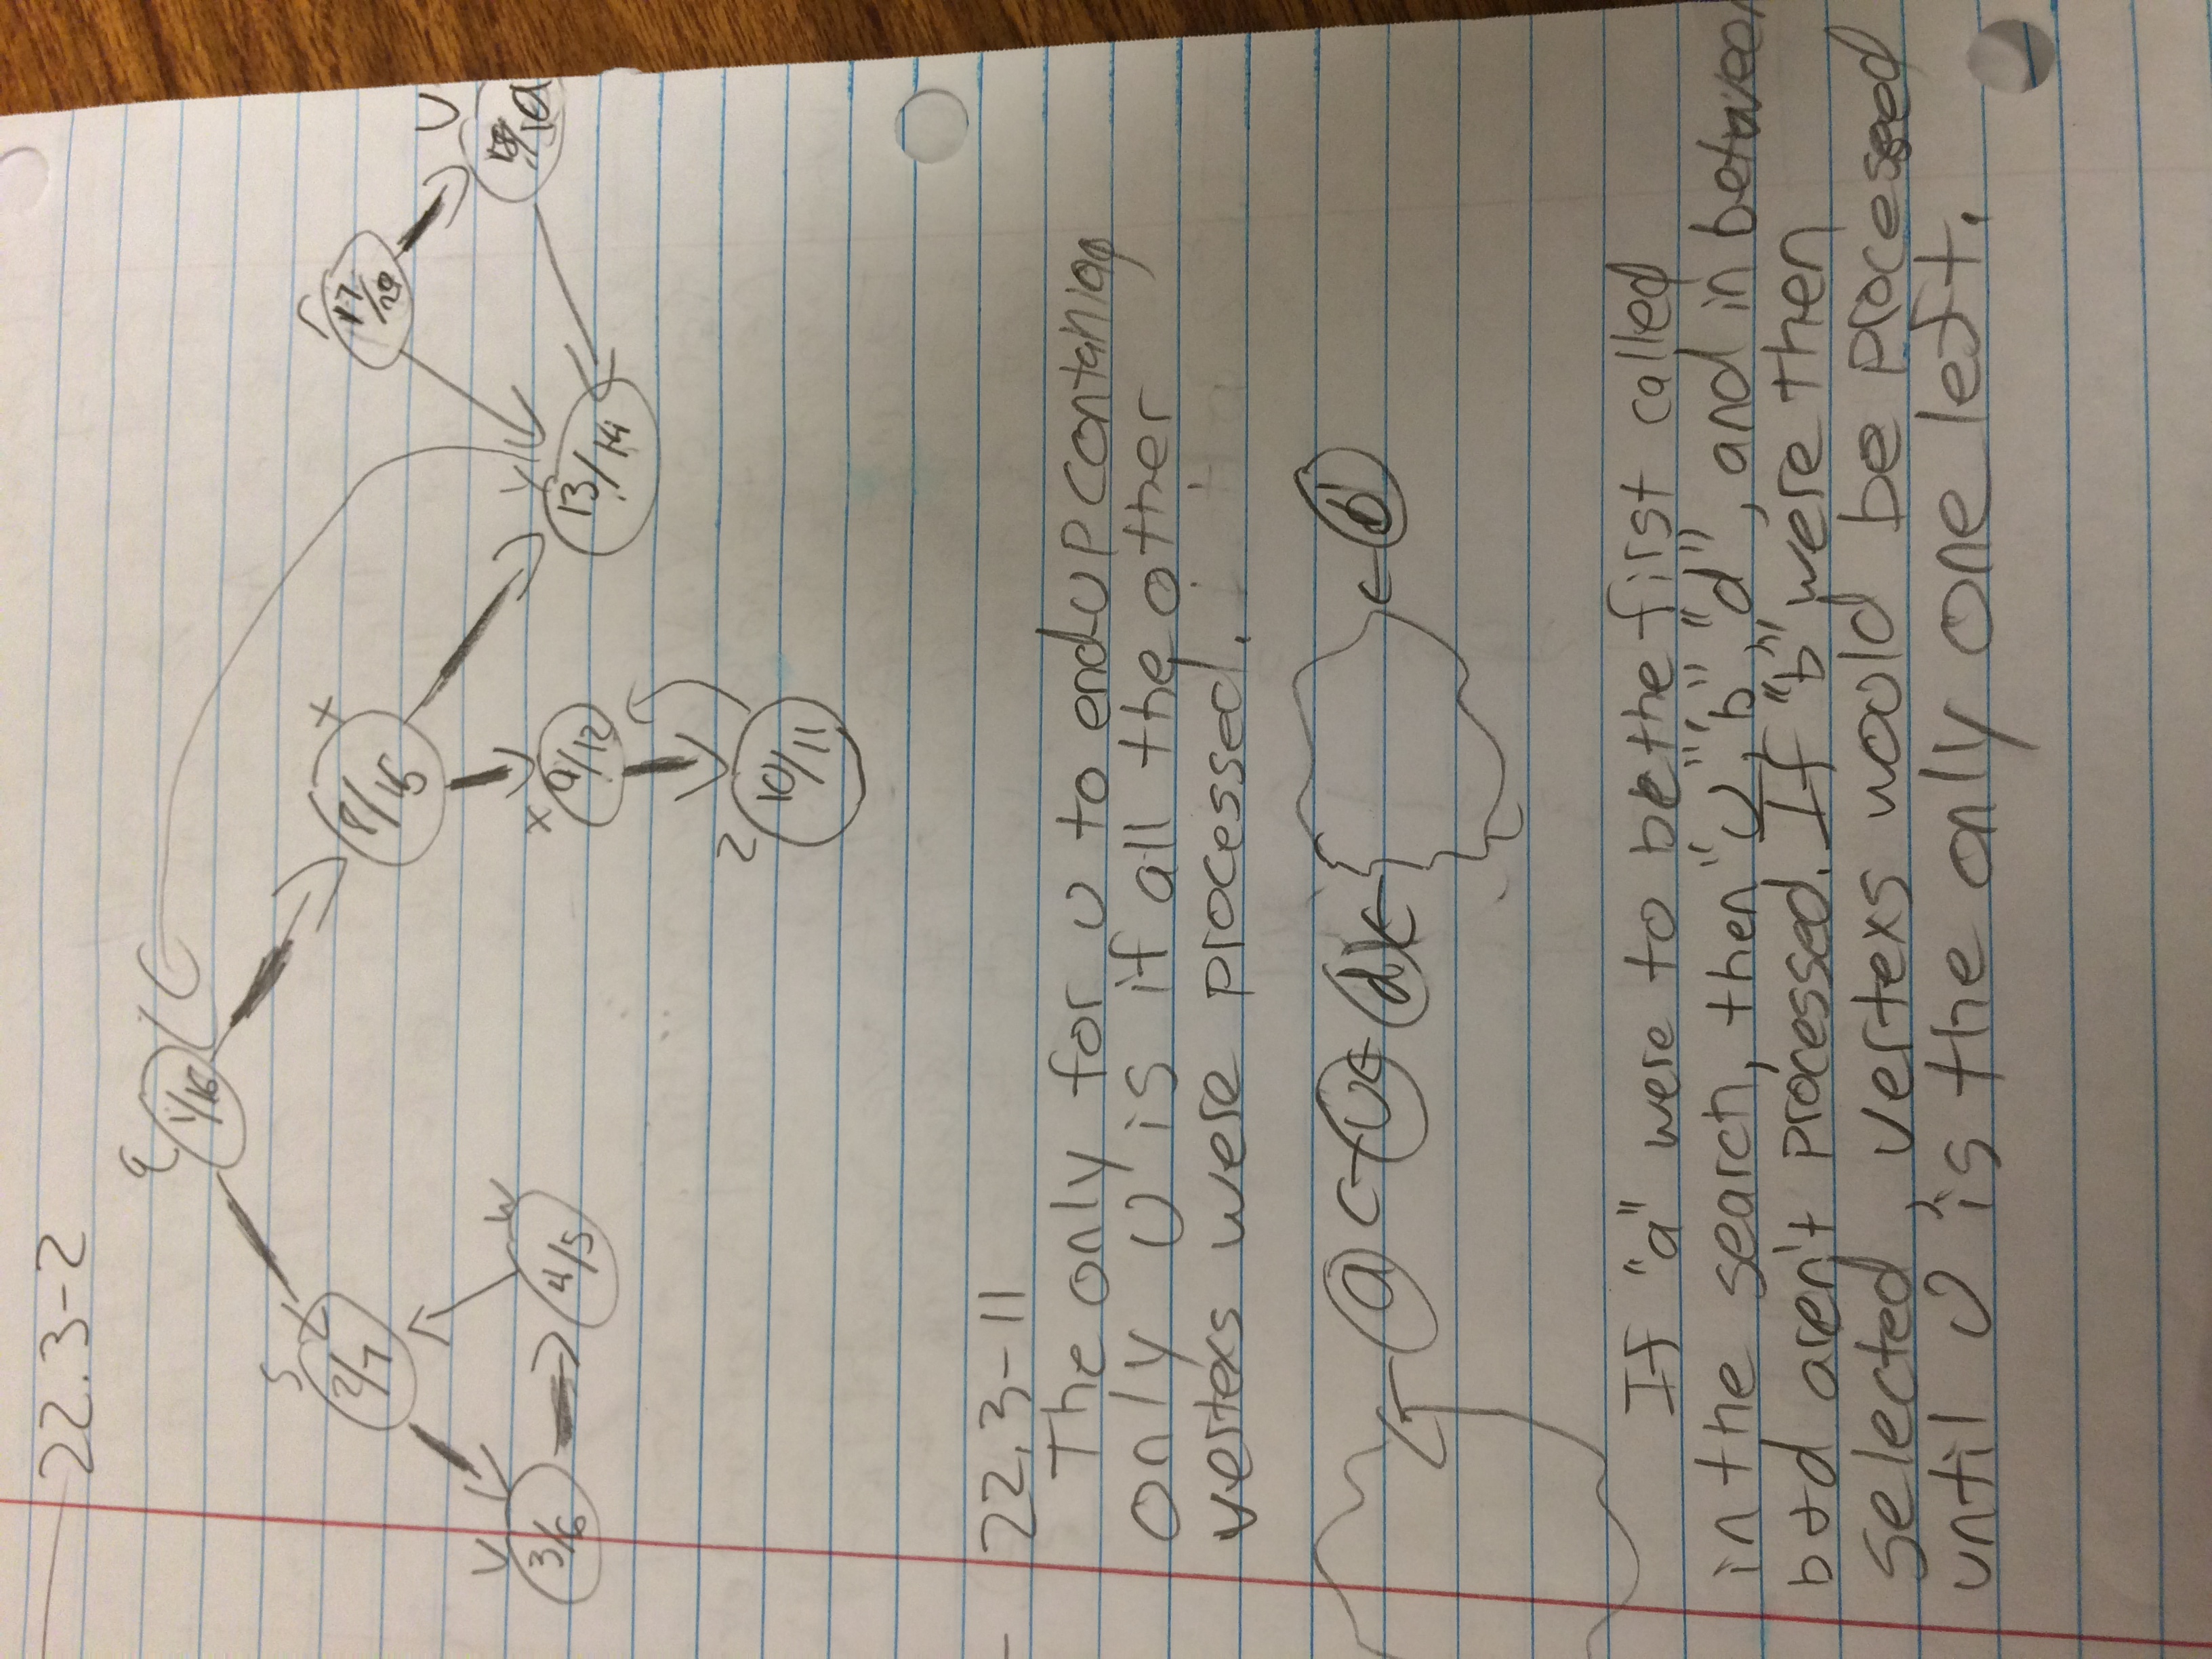 22.3-2
q
1/16
s
2/7
x
8/15
r
17/20
U
V
3/6
w
4/5
x
9/12
Y
13/14
Z
10/11
22.3-11
The only for U to end-up
only U is if all the other
vertexs were processed.
a U d b
If "a" were to be the first called
in the search, then "U", "b", "d", and in between
b+d aren't processed. If "b" were then
selected, vertexs would be processed
until U is the only one left.